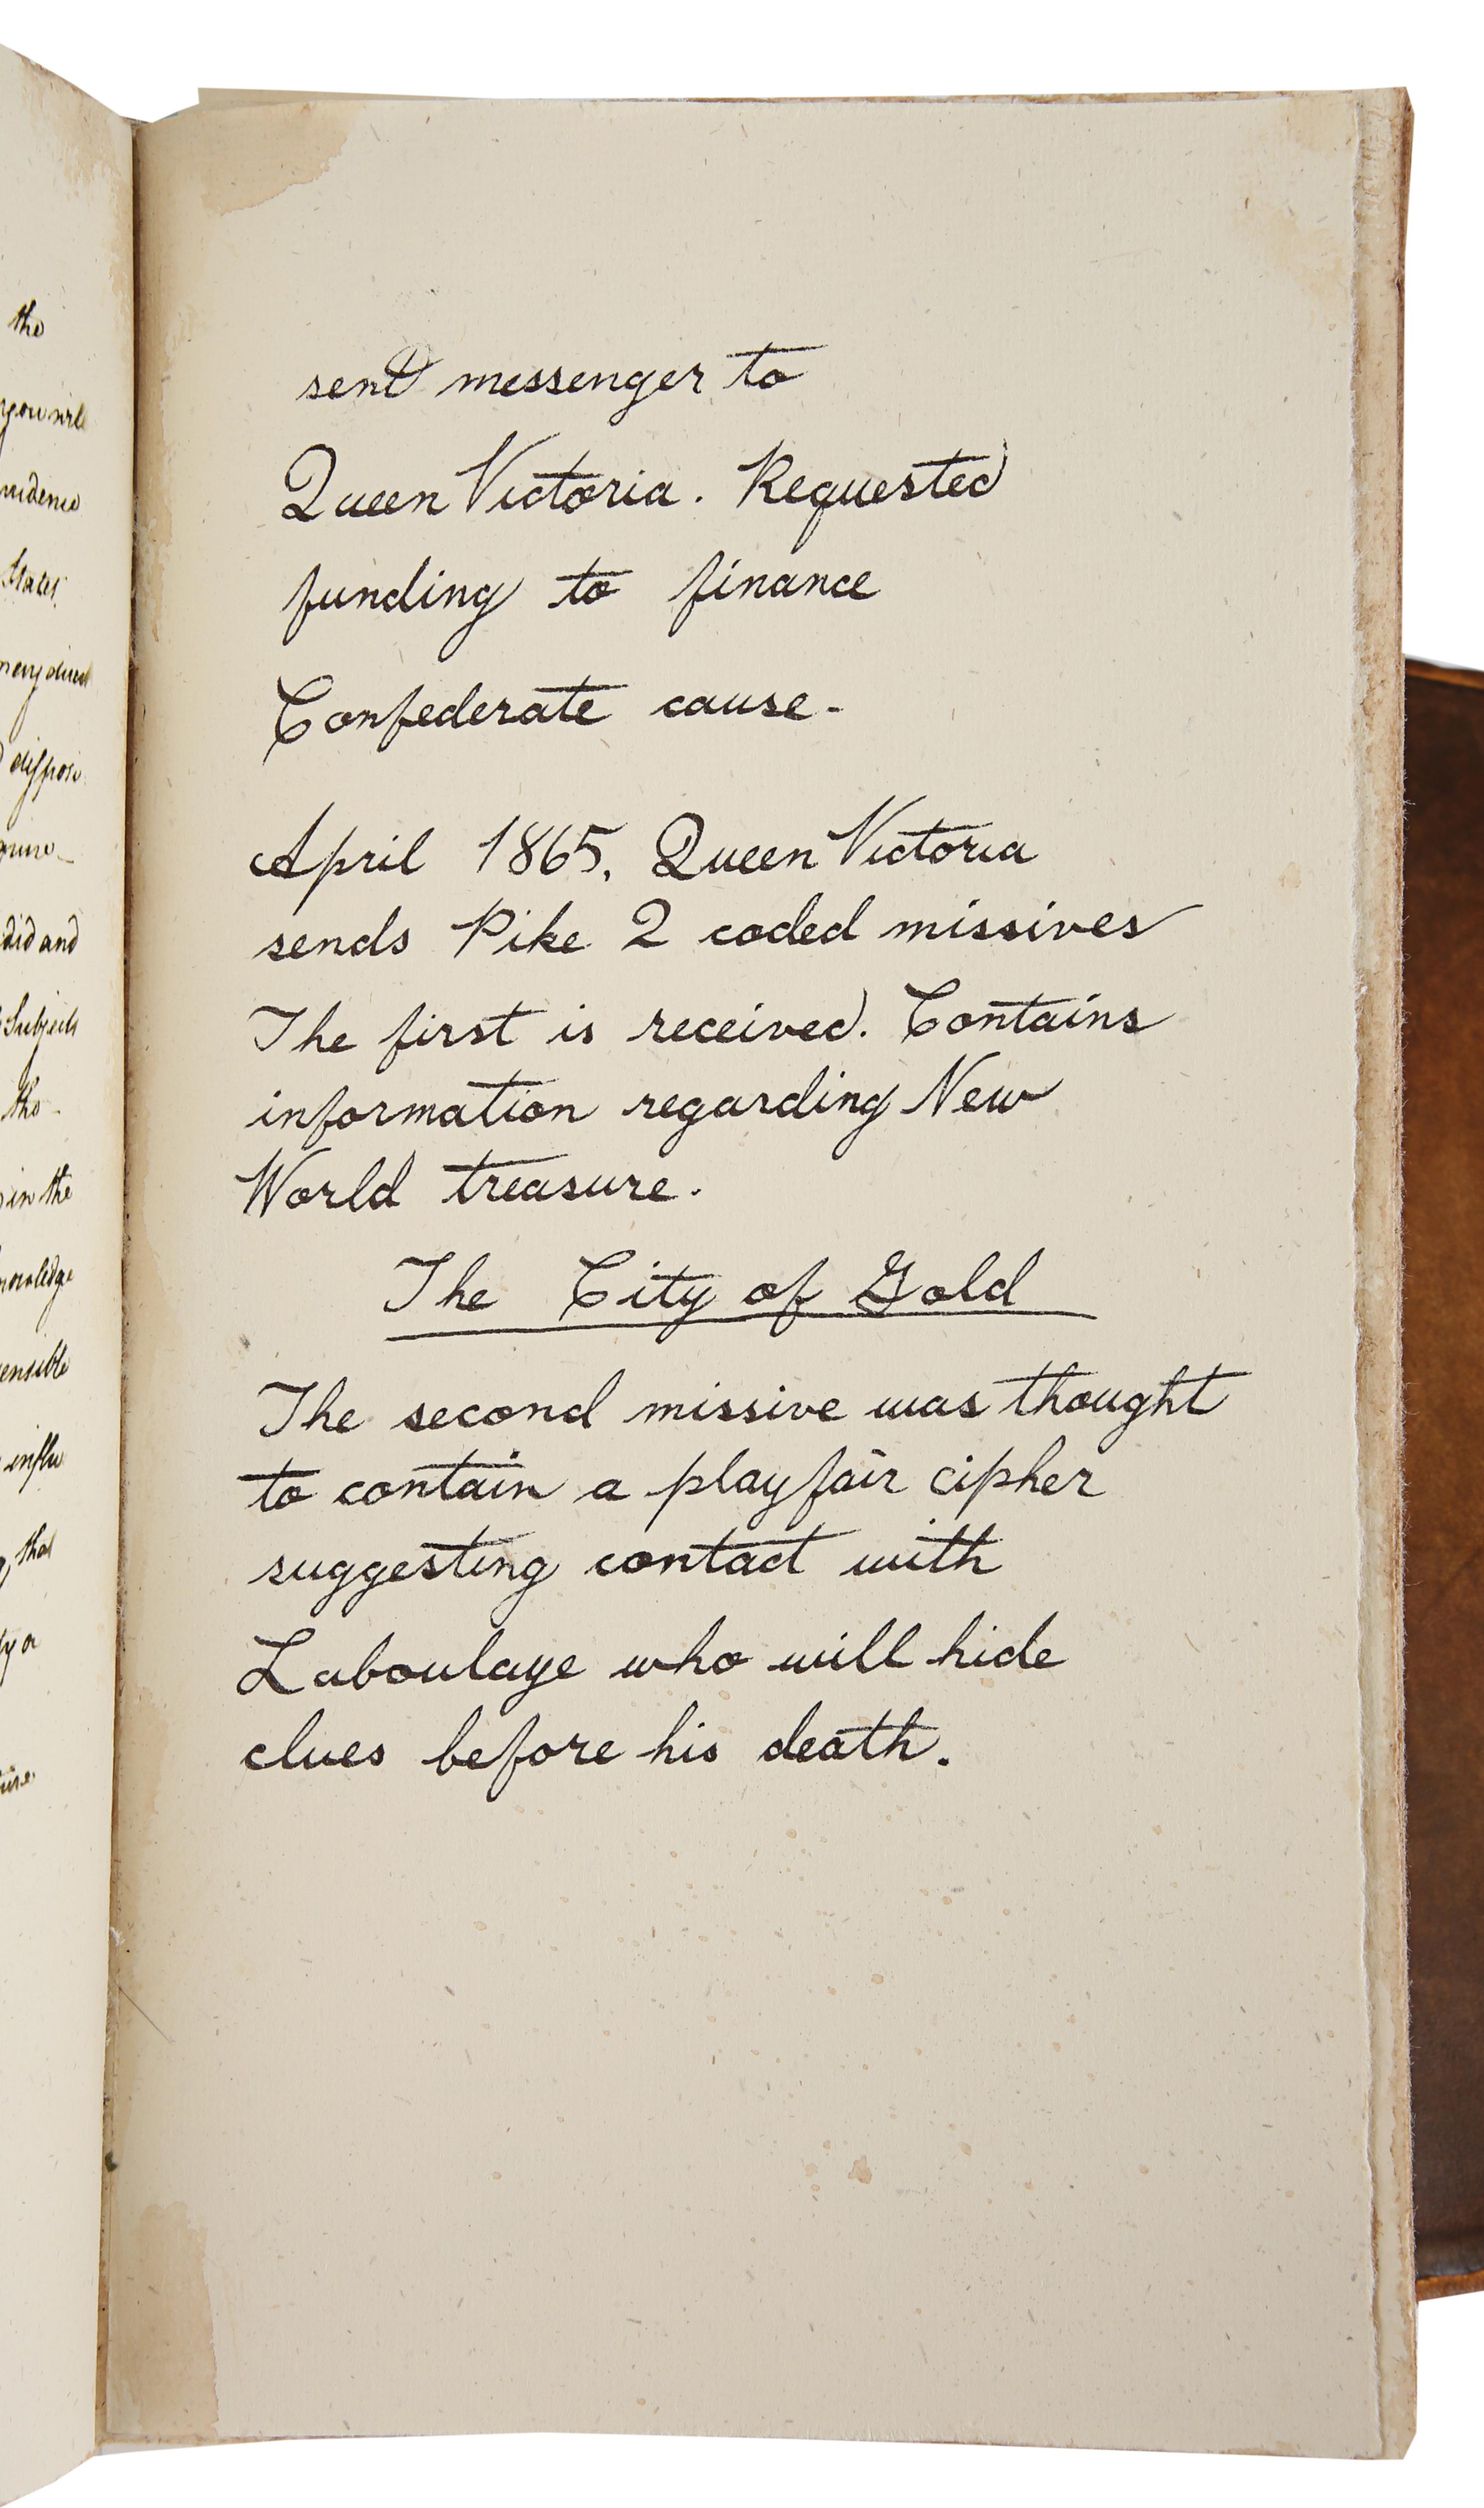 the
States
did and
Subjects
the
in the
ensible
that
sent messenger to
Queen Victoria. Requested
funding to finance
Confederate cause.
April 1865, Queen Victoria
sends Pike 2 coded missives
The first is received. Contains
information regarding New
World treasure.
The City of Gold
The second missive was thought
to contain a playfair cipher
suggesting contact with
Laboulaye who will hide
clues before his death.